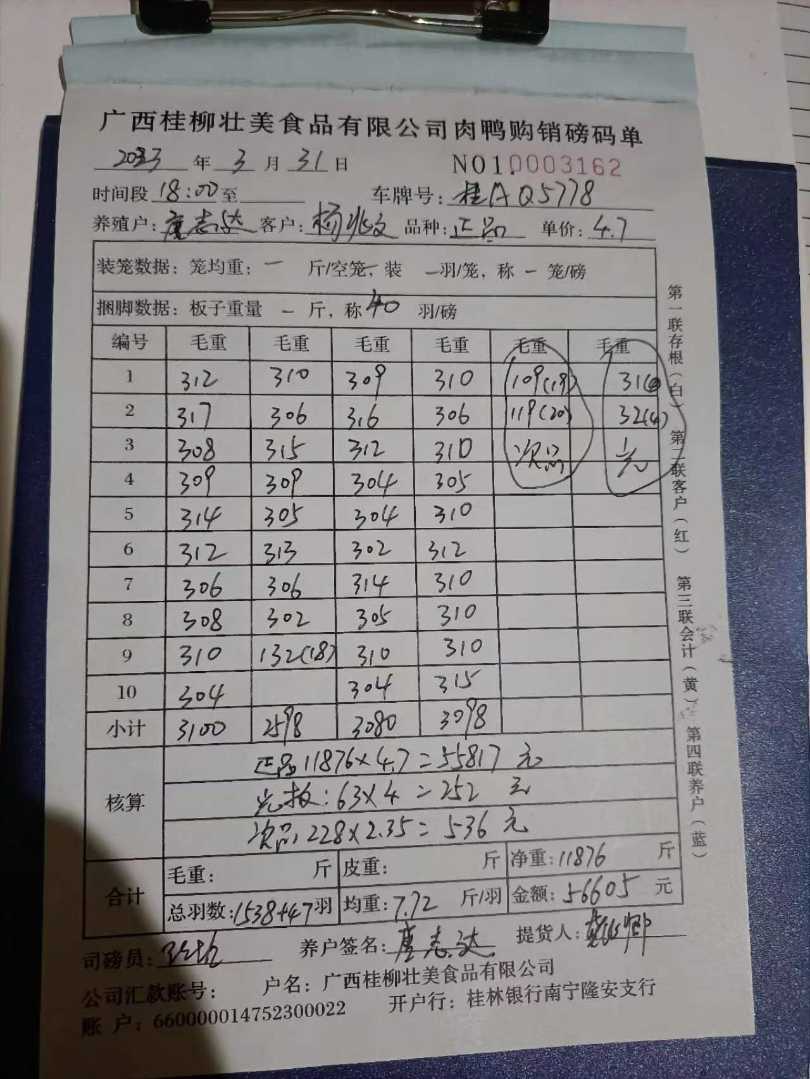 广西桂柳壮美食品有限公司肉鸭购销磅码单
2023 年 3 月 31 日 NO1.0003162
时间段 18:00 至 车牌号: 桂A Q5778
养殖户: 志达 客户: 杨兆文 品种: 正品 单价: 4.7
装笼数据: 笼均重: 一 斤/空笼 装 一 羽/笼, 称 一 笼/磅
捆脚数据: 板子重量 一 斤, 称 40 羽/磅
编号 毛重 毛重 毛重 毛重 毛重 毛重
1 312 310 309 310 109(19) 31(
2 317 306 316 306 119(20) 32(4)
3 308 315 312 310 次品
4 309 309 304 305
5 314 305 304 310
6 312 313 302 312
7 306 306 314 310
8 308 302 305 310
9 310 132(18) 310 310
10 304 304 315
小计 3100 2598 3080 3098
核算
正品11876×4.7=55817 元
光板:63×4=252 元
次品228×2.35=536 元
合计
毛重: 斤 皮重: 斤 净重: 11876 斤
总羽数: 1538+47 羽 均重: 7.72 斤/羽 金额: 56605 元
司磅员: 养户签名: 志达 提货人:
公司汇款账号: 户名: 广西桂柳壮美食品有限公司
账 户: 660000014752300022 开户行: 桂林银行南宁隆安支行
第一联存根(白) 第二联客户(红) 第三联会计(黄) 第四联养户(蓝)